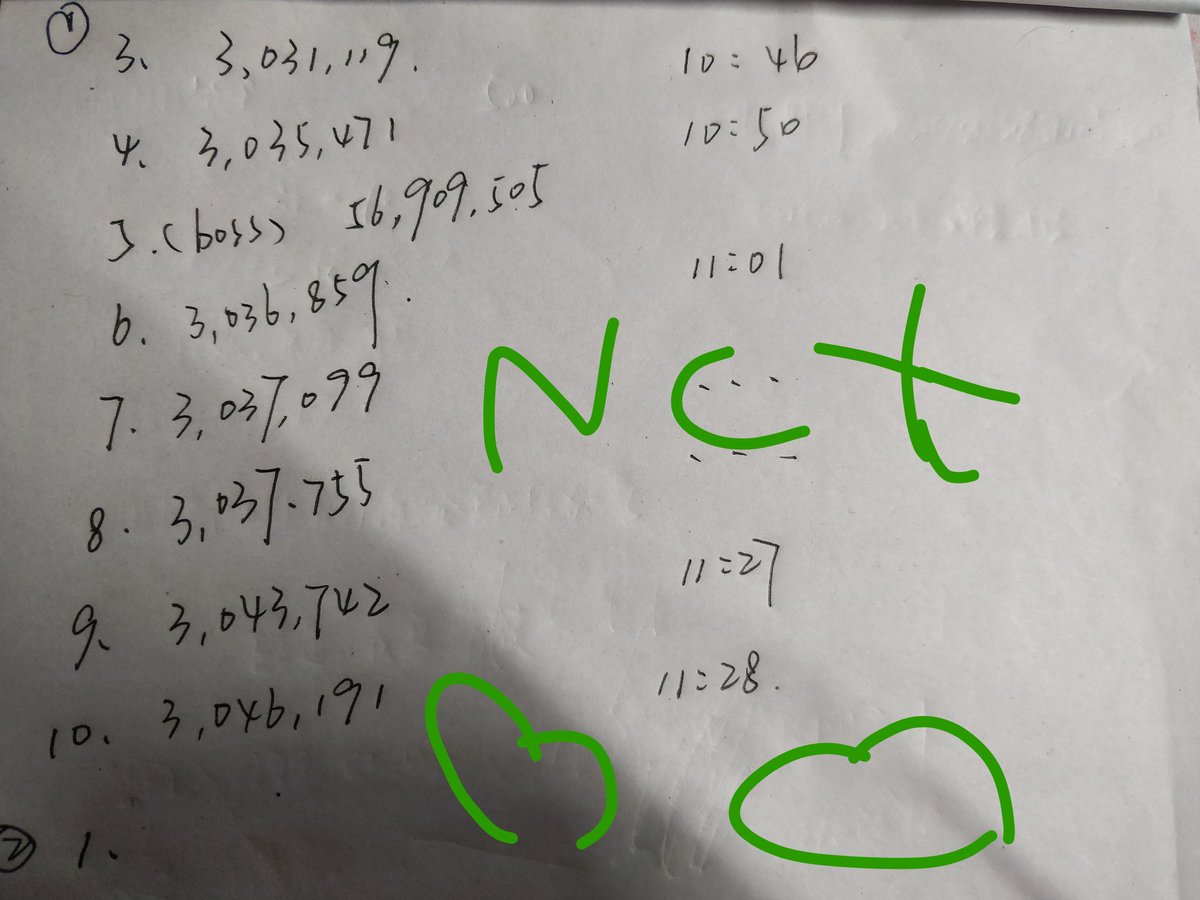 ① 3、 3,031,119. 10:46
4. 3,035,471 10:50
5.(boss) 56,909,505
11:01
6. 3,036,859.
Nct
7. 3,037,099
8. 3,037.755
11:27
9、 3,043,742
11:28.
10. 3,046,191
② 1.